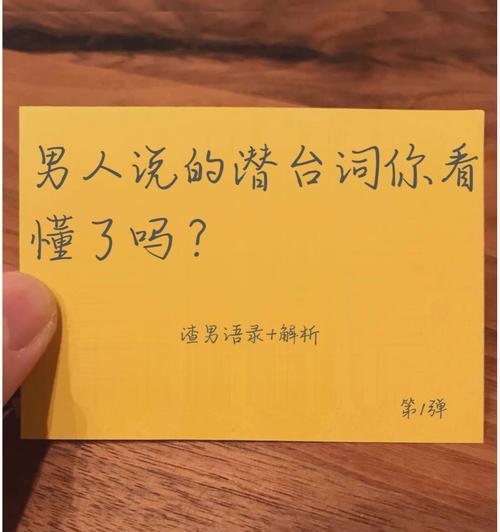 男人说的潜台词你看
懂了吗?
渣男语录+解析
第1弹